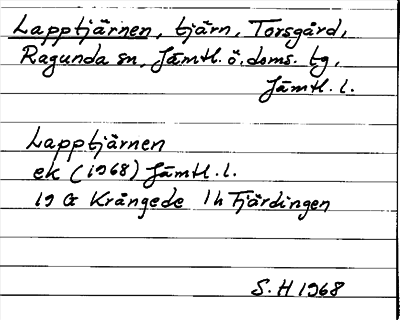 Lapptjärnen, tjärn, Torsgård,
Ragunda sn, Jämtl. ö. doms. tg,
Jämtl. l.
Lapptjärnen
ek (1968) Jämtl. l.
19 G Krångede 1 h Tjärdingen
S. H 1968